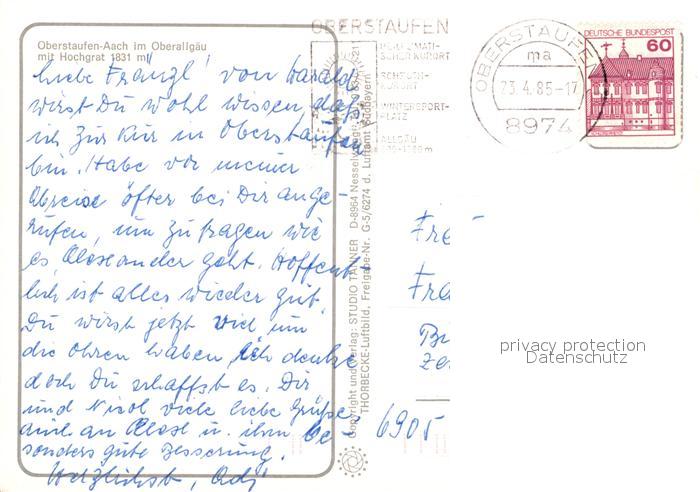 Oberstaufen-Aach im Oberallgäu
mit Hochgrat 1831 m
liebe Fränzl! von Harald
wirst Du wohl wissen, daß
ich zur Kur in Oberstaufen
bin. Habe vor meiner
Abreise öfter bei Dir ange-
rufen, um zu fragen wie
es Alexander geht. Hoffent-
lich ist alles wieder gut.
Du wirst jetzt viel um
die Ohren haben, ich denke
doch Du schaffst es. Dir
und Nicol viele liebe Grüße
auch an Alex u. ihm be-
sonders gute Besserung.
Herzlichst,
Copyright und Verlag: STUDIO TANNER D-8964 Nesselwang
THORBECKE-Luftbild, Freigabe-Nr. G-5/6274 d. Luftamt Südbayern
OBERSTAUFEN
SCHROTH-
KURORT
WINTERSPORT-
PLATZ
ALLGÄU
OBERSTAUFEN
ma
23.4.85-17
8974
DEUTSCHE BUNDESPOST
60
Fra
6905
privacy protection
Datenschutz